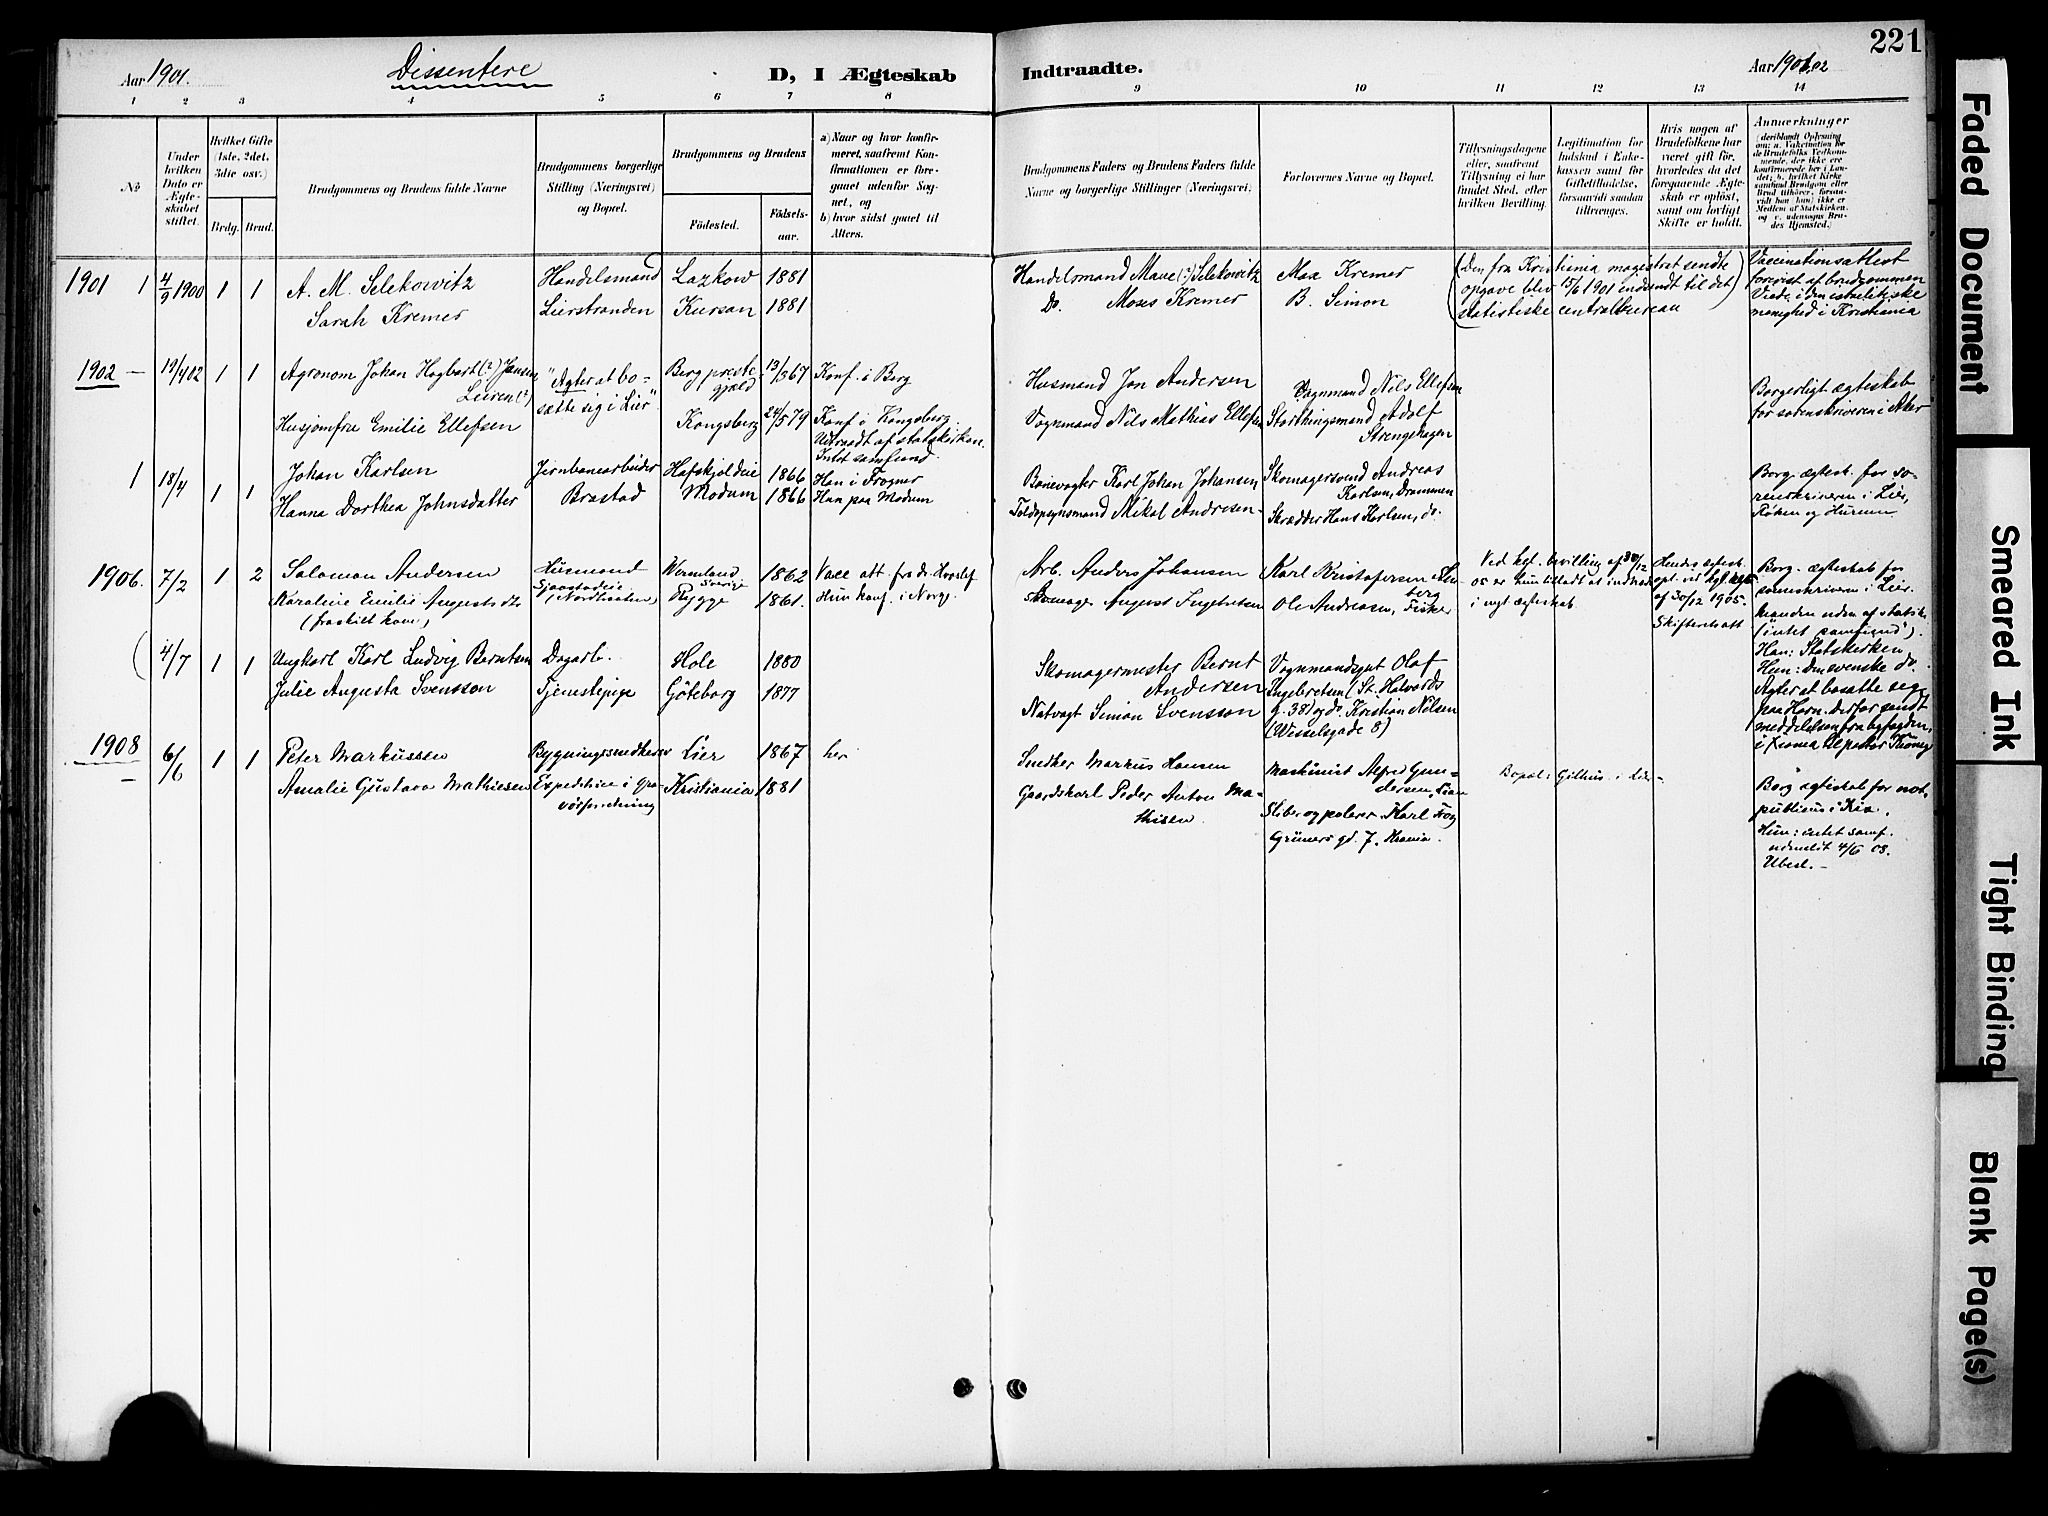 221
Aar 1901.
Dissentere
D, I Ægteskab
Indtraadte.
Aar 1901.02
1 2 3 4 5 6 7 8 9 10 11 12 13 14
No
Under hvilken Dato er Ægteskabet stiftet.
Hvilket Gifte (1ste, 2det, 3die osv.)
Brdg. Brud.
Brudgommens og Brudens fulde Navne
Brudgommens borgerlige Stilling (Næringsvei) og Bopæl.
Brudgommens og Brudens
Födested.
Födselsaar.
a) Naar og hvor konfirmeret, saafremt Konfirmationen er foregaaet udenfor Sognet, og
b) hvor sidst gaaet til Alters.
Brudgommens Faders og Brudens Faders fulde Navne og borgerlige Stillinger (Næringsvei.)
Forlovernes Navne og Bopæl.
Tillysningsdagene eller, saafremt Tillysning ei har fundet Sted, efter hvilken Bevilling.
Legitimation for Indskud i Enkekassen samt for Giftetilladelse, forsaavidt saadan tiltrænges.
Hvis nogen af Brudefolkene har været gift för, hvorledes da det foregaaende Ægteskab er oplöst, samt om lovligt Skifte er holdt.
Anmærkninger
1901 1 4/9 1900 1 1 A. M. Selekowitz Handelsmand Lazkow 1881
Sarah Kremer Lierstranden Kursan 1881
Handelsmand Maue (?) Selekowitz Max Kremer
Do. Moses Kremer B. Simon
(Den fra Kristiania magistrat sendte
opgave blev 15/6 1901 indsendt til det
statistiske centralbureau)
Vaccinationsattest
forevist af brudgommen
Viede i den israelitiske
menighed i Kristiania
1902 - 19/4 02 1 1 Agronom Johan Hagbart (?) Jansen
Leiren (?)
"Agter at bosætte sig i Lier"
Berg prestegjæld 13/3 67 Konf. i Berg
Husjomfru Emilie Ellefsen Kongsberg 24/5 79 Konf i Kongsberg.
Udtraadt af statskirken.
Intet samfund.
Husmand Jon Andersen Vognmand Nils Ellefsen
Vognmand Nils Mathias Ellefsen Storthingsmand Adolf
Strengehagen
Borgerligt ægteskab
for sorenskriveren i Aker
1 18/4 1 1 Johan Karlsen Jernbanearbeider Hafskjoldeie 1866 Han i Frogner
Hanna Dorthea Johnsdatter Brastad Modum 1866 Hun paa Modum
Banevogter Karl Johan Johansen Skomagersvend Andreas
Karlsen, Drammen
Toldopsynsmand Mikal Andresen Skrædder Hans Karlsen, do.
Borg. ægtesk. for sorenskriveren i Lier,
Röken og Hurum
1906. 7/2 1 2 Salomon Andersen Husmand Wermland Sverige 1862 Vacc att. fra dr.
Karoline Emilie Augustsdtr (Nordtraaten) Rygge 1861. Hun konf. i Norge.
(fraskilt kone,)
Arb. Anders Johansen Karl Kristofersen
Skomager August Ingebretsen Ole Andresen, Fisker
Ved kgl. bevilling af 30/12
05 er hun tilladt at indtræde
i nyt ægteskab.
Hendes ægtesk.
opl. ved kgl. res.
af 30/12 1905.
Skifteretsatt
Borg. ægteskab for
sorenskriveren i Lier.
Manden uden af statsk.
("intet samfund").
( 4/7 1 1 Ungkarl Karl Ludvig Berntsen Dagarb. Hole 1880
Julie Augusta Svensson Tjenestepige Göteborg 1877
Skomagermester Bernt Andersen
Natvagt Simon Svensson
Vognmandsgut Olaf
Ingebretsen (St. Halvords
g. 38) og do. Kristian Nilsen
(Wesselsgade 8)
Han: Statskirken
Hun: den svenske do.
Agter at bosatte sig
paa Horn. derfor sendt
meddelelsen fra byfogden
1908 - 6/6 1 1 Peter Markussen Bygningssnedker Lier 1867 her
Amalie Gustava Mathiesen Expeditrice i Kristiania 1881
Snedker Markus Hansen Maskinist Alfred Gundersen, Lian
Gaardskarl Peder Anton Mathisen Sliber og polerer Karl
Grüners gd. 7. Krania.
Bopæl: Gilhus i Lier
Borg ægteskab for not.
publicus i Kra.
Hun: intet samf.
udmeldt 4/6 08.
Ubesl. -
Faded Document
Smeared Ink
Tight Binding
Blank Page(s)